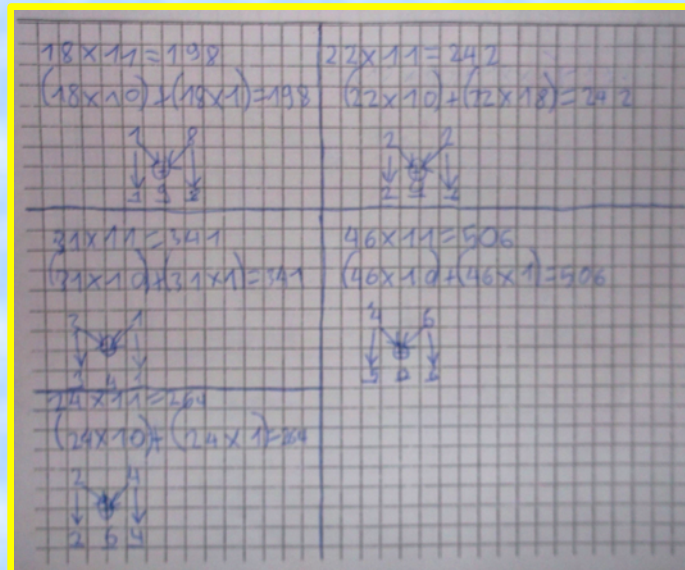 18×11=198
(18×10)+(18×1)=198
1 8
+
1 9 8
22×11=242
(22×10)+(22×18)=242
2 2
+
2 4 2
31×11=341
(31×10)+(31×1)=341
3 1
+
3 4 1
46×11=506
(46×10)+(46×1)=506
4 6
+
5 0 6
24×11=264
(24×10)+(24×1)=264
2 4
+
2 6 4